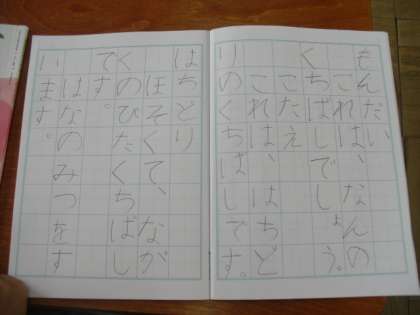 もんだい
これは、なんの
くちばしでしょう。
こたえ
これは、はちど
りのくちばしです。
はちどり
ほそくて、なが
くのびたくちばし
です。
はなのみつをす
います。